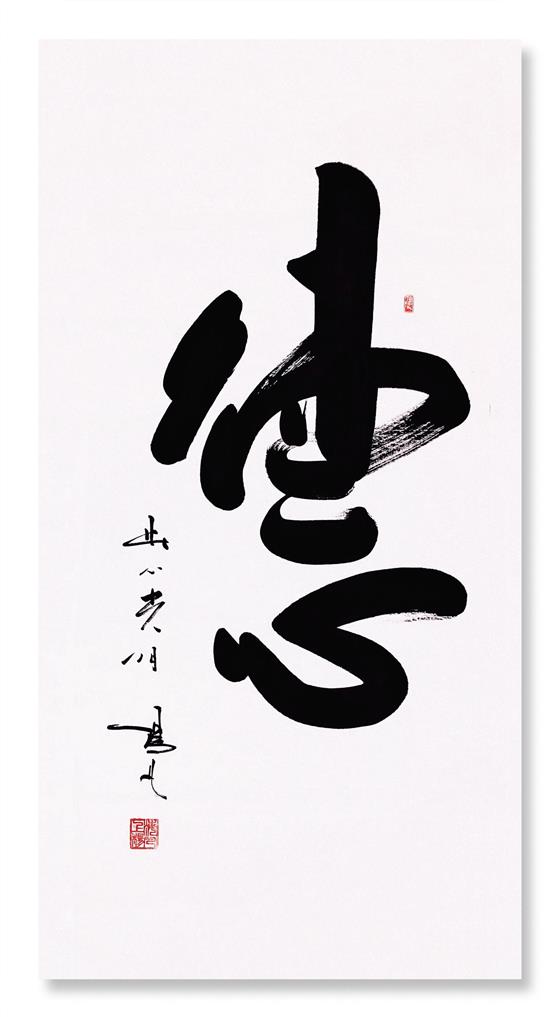 德
此心光明